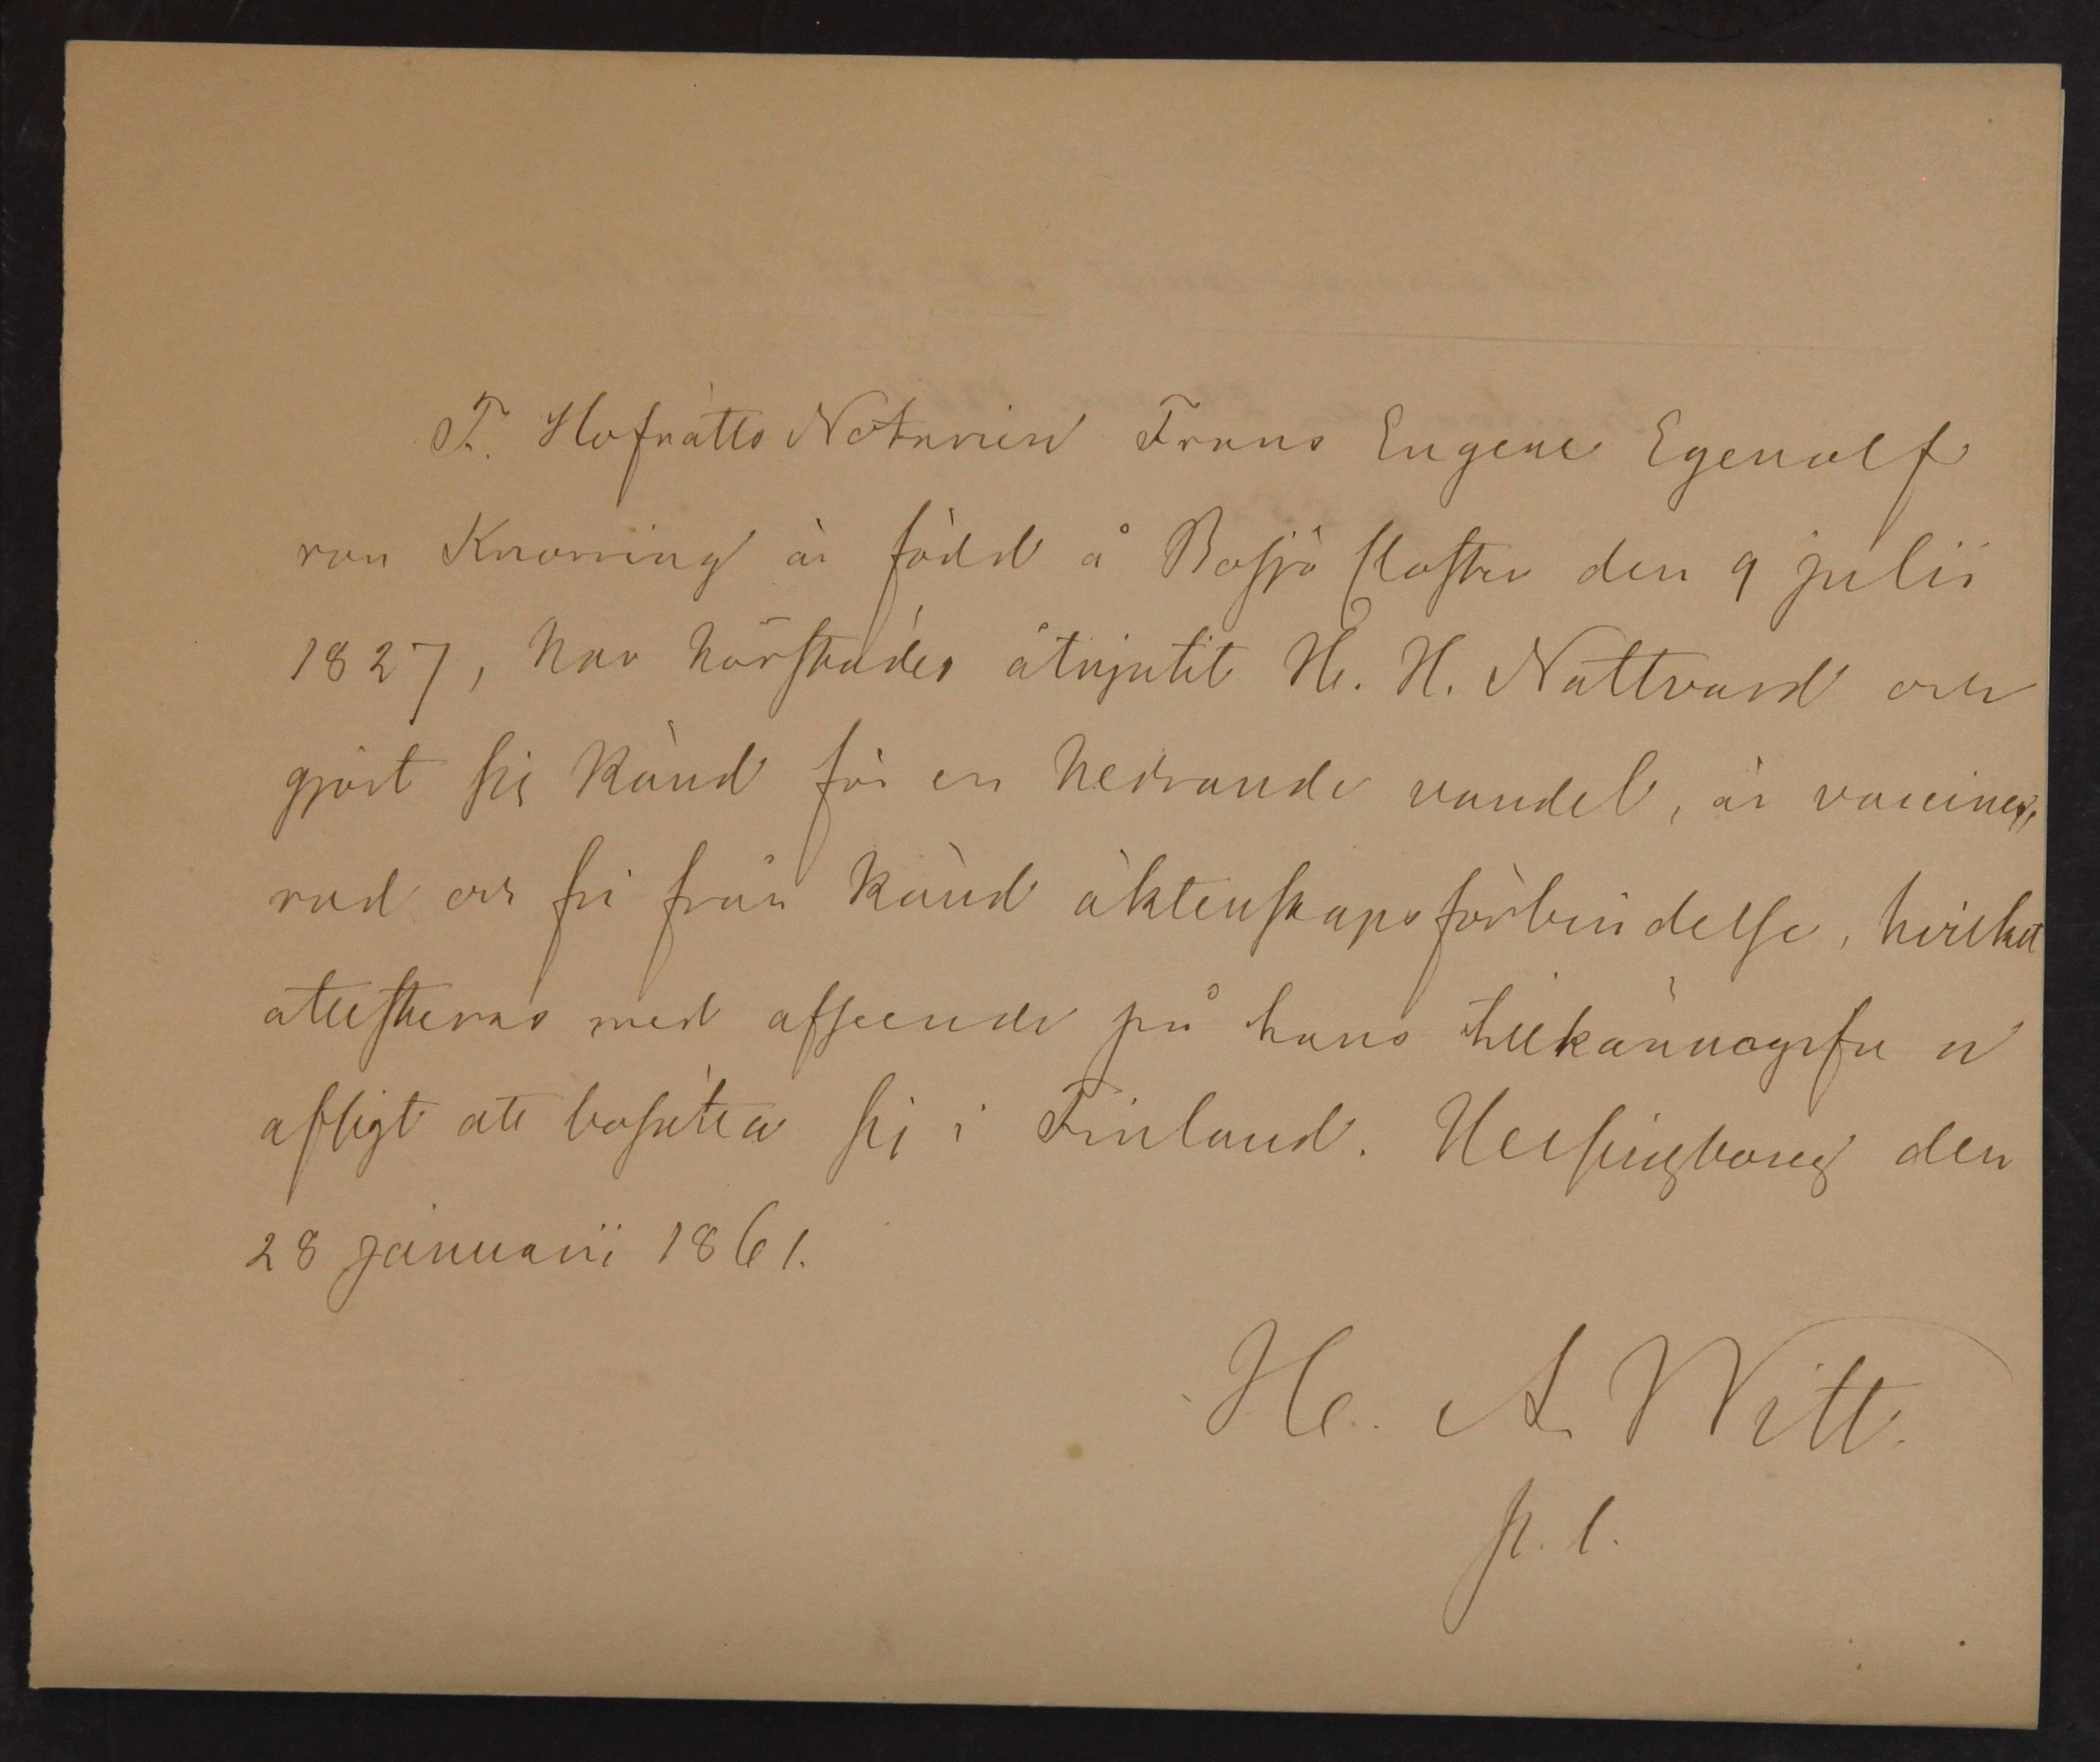 F. Hofrätts Notarien Frans Eugene Egenolf
von Knorring är född å Bosjö kloster den 9 julii
1827, har härstädes åtnjutit H. H. Nattvard och
gjort sig känd för en hedrande vandel, är vaccine„
rad och fri från känd äktenskapsförbindelse, hvilket
attesteras med afseende på hans tillkännagifna
afsigt att bosätta sig i Finland. Helsingborg den
28 januarii 1861.
H. A. Witt.